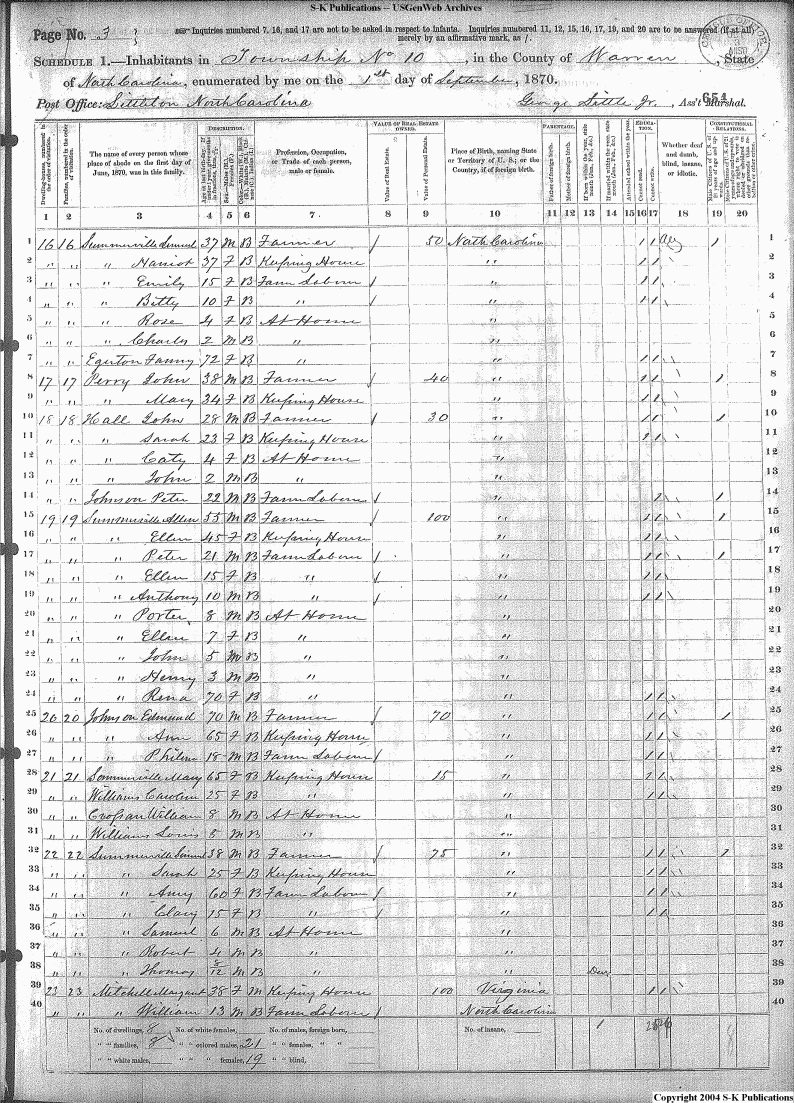 S-K Publications -- USGenWeb Archives
Page No. 3
Inquiries numbered 7, 16, and 17 are not to be asked in respect to infants. Inquiries numbered 11, 12, 15, 16, 17, 19, and 20 are to be answered (if at all) merely by an affirmative mark, as /.
SCHEDULE 1.—Inhabitants in Township No 10, in the County of Warren, State
of North Carolina, enumerated by me on the 1st day of September, 1870.
654
Post Office: Littleton North Carolina George Little Jr., Ass't Marshal.
DESCRIPTION. VALUE OF REAL ESTATE OWNED. PARENTAGE. EDUCATION. CONSTITUTIONAL RELATIONS.
The name of every person whose place of abode on the first day of June, 1870, was in this family.
Profession, Occupation, or Trade of each person, male or female.
Value of Real Estate.
Value of Personal Estate.
Place of Birth, naming State or Territory of U. S.; or the Country, if of foreign birth.
Father of foreign birth.
Mother of foreign birth.
Attended school within the year.
Cannot read.
Cannot write.
Whether deaf and dumb, blind, insane, or idiotic.
1 2 3 4 5 6 7 8 9 10 11 12 13 14 15 16 17 18 19 20
1 16 16 Summerville Samuel 37 M B Farmer / 50 North Carolina / / / 1
2 " " " Harriot 37 F B Keeping House " / / 2
3 " " " Emily 15 F B Farm Laborer / " / / 3
4 " " " Bitty 10 F B " / " / / 4
5 " " " Rose 4 F B At Home " 5
6 " " " Charles 2 M B " " 6
7 " " Egerton Fanny 72 F B " " / / 7
8 17 17 Perry John 38 M B Farmer / 40 " / / / 8
9 " " " Mary 34 F B Keeping House " / / 9
10 18 18 Hall John 28 M B Farmer / 30 " / / / 10
11 " " " Sarah 23 F B Keeping House " / / 11
12 " " " Caty 4 F B At Home " 12
13 " " " John 2 M B " " 13
14 " " Johnson Peter 22 M B Farm Laborer / " / / 14
15 19 19 Summerville Allen 55 M B Farmer / 100 " / / / 15
16 " " " Ellen 45 F B Keeping House " / / 16
17 " " " Peter 21 M B Farm Laborer / " / / / 17
18 " " " Ellen 15 F B " / " / / 18
19 " " " Anthony 10 M B " / " / / 19
20 " " " Porter 8 M B At Home " 20
21 " " " Ellen 7 F B " " 21
22 " " " John 5 M B " " 22
23 " " " Henry 3 M B " " 23
24 " " " Rena 70 F B " " / / 24
25 20 20 Johnson Edmund 70 M B Farmer / 70 " / / / 25
26 " " " Ann 65 F B Keeping House " / / 26
27 " " " 18 M B Farm Laborer / " / / 27
28 21 21 Sommerville Mary 65 F B Keeping House 15 " / / 28
29 " " Williams Carolin 25 F B " " / / 29
30 " " William 8 M B At Home " 30
31 " " Williams Louis 5 M B " " 31
32 22 22 Summerville Samuel 38 M B Farmer / 75 " / / / 32
33 " " " Sarah 25 F B Keeping House " / / 33
34 " " " Amy 60 F B Farm Laborer / " / / 34
35 " " " Clary 15 F B " / " / / 35
36 " " " Samuel 6 M B At Home " 36
37 " " " Robert 4 M B " " 37
38 " " " Thomas M B " " Dec 38
39 23 23 Mitchell Margaret 38 F M Keeping House 100 Virginia / / 39
40 " " " William 13 M B Farm Laborer / North Carolina 40
No. of dwellings, 8 No. of white females, No. of males, foreign born, No. of insane, 1
" " families, 8 " " colored males, 21 " " females, " "
" " white males, " " " females, 19 " " blind,
Copyright 2004 S-K Publications